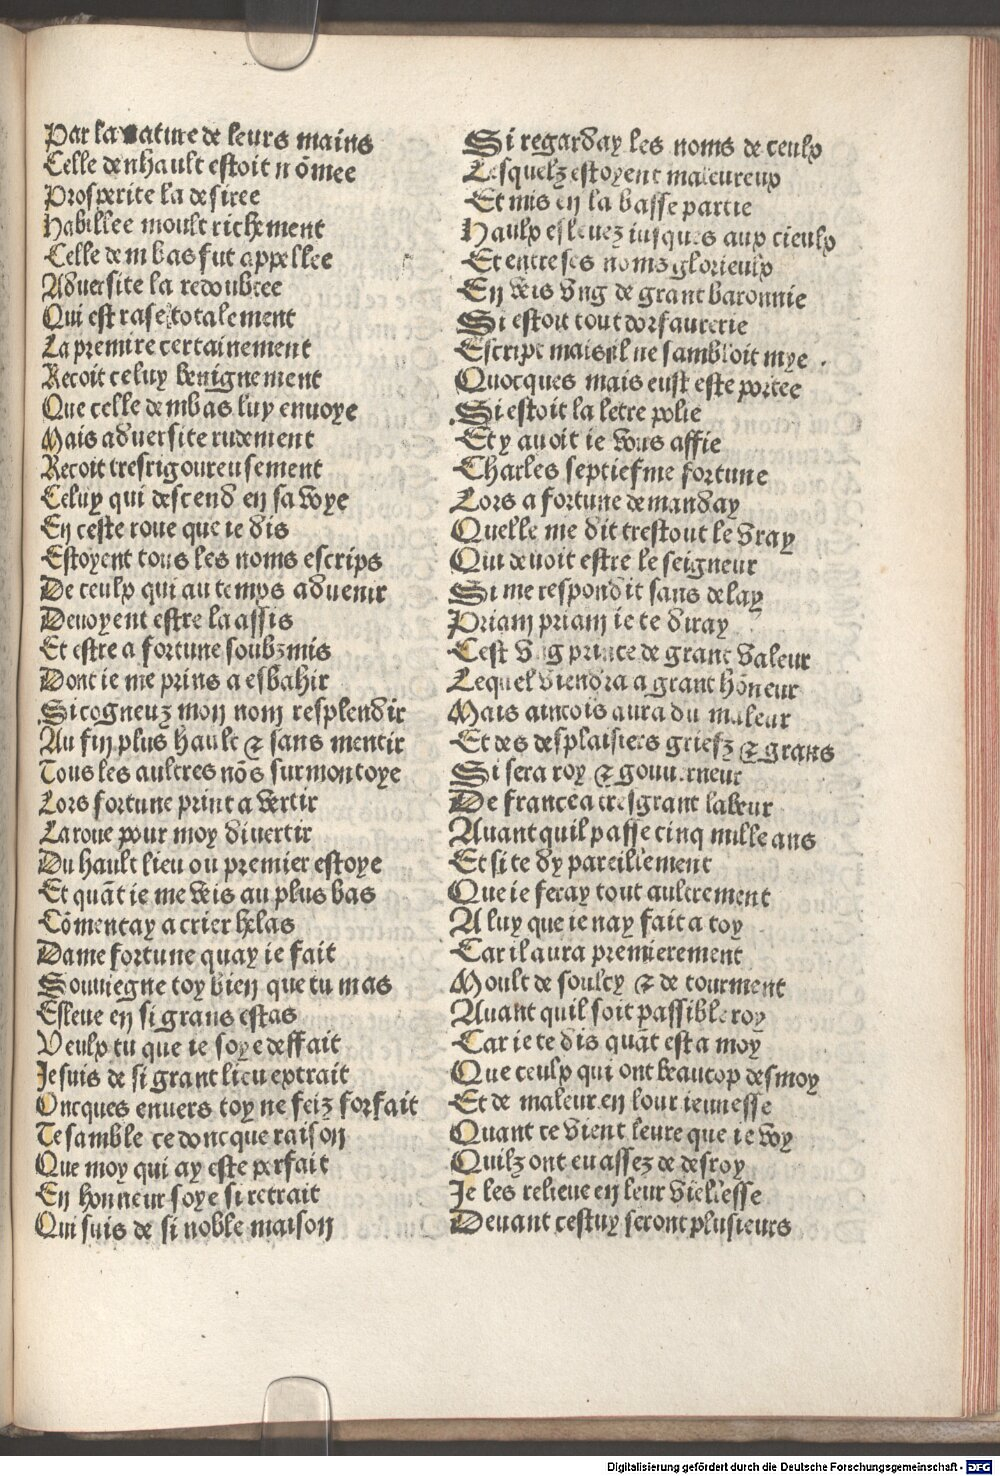 Par la nature de leurs mains
Celle denhault estoit nõmee
Prosperite la desiree
Habillee moult richement
Celle dembas fut appellee
Aduersite la redoubtee
Qui est rase totalement
La premire certainement
Recoit celuy benignement
Que celle dembas luy enuoye
Mais aduersite rudement
Recoit tresrigoureusement
Celuy qui descend en sa voye
En ceste roue que ie dis
Estoyent tous les noms escrips
De ceulx qui au temps aduenir
Deuoyent estre la assis
Et estre a fortune soubzmis
Dont ie me prins a esbahir
Si cogneuz mon nom resplendir
Au fin plus hault & sans mentir
Tous les aultres nõs surmontoye
Lors fortune print a vertir
La roue pour moy diuertir
Du hault lieu ou premier estoye
Et quãt ie me veis au plus bas
Cõmentay a crier helas
Dame fortune quay ie fait
Souuiegne toy bien que tu mas
Esleue en si grans estas
Veulx tu que ie soye deffait
Je suis de si grant lieu extrait
Oncques enuers toy ne feiz forfait
Te samble ce doncque raison
Que moy qui ay este perfait
En honneur soye si retrait
Qui suis de si noble maison
Si regarday les noms de ceulx
Lesquelz estoyent maleureux
Et mis en la basse partie
Haulx esleuez iusques aux cieulx
Et entre ses noms glorieulx
En veis vng de grant baronnie
Si estoit tout dorfaurerie
Escript mais il ne sambloit mye
Quocques mais eust este portee
Si estoit la letre polie
Et y auoit ie vous affie
Charles septiesme fortune
Lors a fortune demanday
Quelle me dit trestout le vray
Qui deuoit estre le seigneur
Si me respondit sans delay
Priam priam ie te diray
Cest vng prince de grant valeur
Lequel viendra a grant hõneur
Mais aincois aura du maleur
Et des desplaisiers griefz & grans
Si sera roy & gouuerneur
De france a tresgrant labeur
Auant quil passe cinq mille ans
Et si te dy pareillement
Que ie feray tout aultrement
A luy que ie nay fait a toy
Car il aura premierement
Moult de soulcy & de tourment
Auant quil soit passible roy
Car ie te dis quãt est a moy
Que ceulx qui ont beaucop desmoy
Et de maleur en lour ieunesse
Quant ce vient leure que ie voy
Quilz ont eu assez de desroy
Je les relieue en leur viellesse
Deuant cestuy seront plusieurs
Digitalisierung gefördert durch die Deutsche Forschungsgemeinschaft - DFG